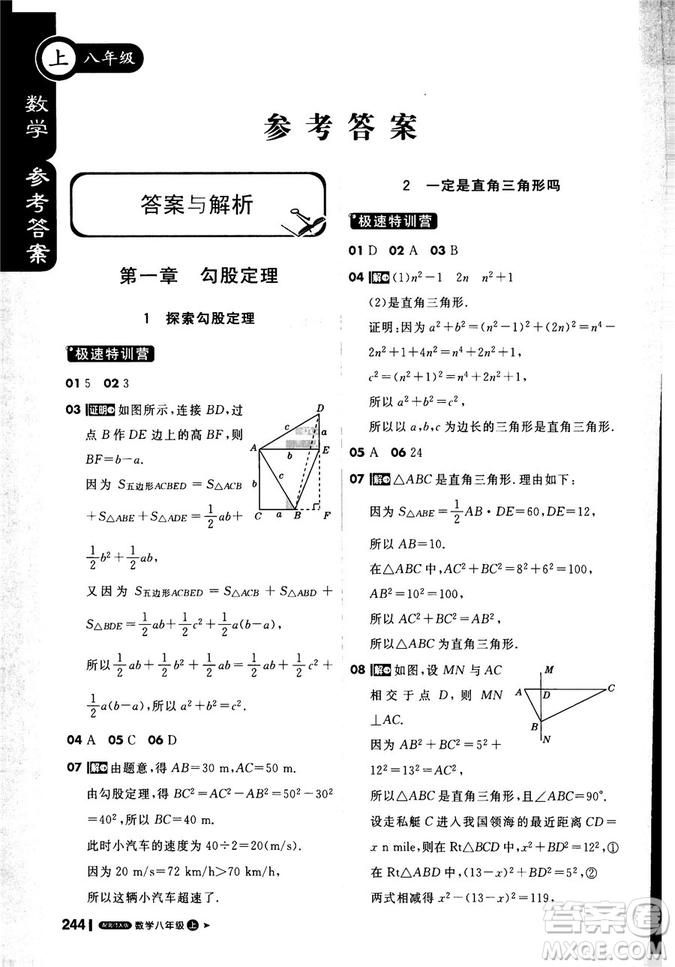 上 八年级
数学 参考答案
参考答案
答案与解析
第一章 勾股定理
1 探索勾股定理
极速特训营
01 5 02 3
03 证明 如图所示,连接 BD,过
点 B 作 DE 边上的高 BF,则
BF=b-a.
因为 S五边形ACBED = S△ACB
+S△ABE+S△ADE=1/2ab+
1/2b²+1/2ab,
又因为 S五边形ACBED = S△ACB + S△ABD +
S△BDE=1/2ab+1/2c²+1/2a(b-a),
所以1/2ab+1/2b²+1/2ab=1/2ab+
1/2c²+1/2a(b-a).所以 a²+b²=c².
D
c
a
A
b
E
c
b
C
a
B
F
04 A 05 C 06 D
07 解 由题意,得 AB=30 m,AC=50 m.
由勾股定理,得 BC²=AC²-AB²=50²-30²
=40²,所以 BC=40 m.
此时小汽车的速度为 40÷2=20(m/s).
因为 20 m/s=72 km/h>70 km/h,
所以这辆小汽车超速了.
2 一定是直角三角形吗
极速特训营
01 D 02 A 03 B
04 解 (1)n²-1 2n n²+1
(2)是直角三角形.
证明:因为 a²+b²=(n²-1)²+(2n)²=n⁴-
2n²+1+4n²=n⁴+2n²+1,
c²=(n²+1)²=n⁴+2n²+1,
所以 a²+b²=c².
所以以 a,b,c 为边长的三角形是直角三角形.
05 A 06 24
07 解 △ABC 是直角三角形.理由如下:
因为 S△ABE=1/2AB·DE=60,DE=12,
所以 AB=10.
在△ABC 中,AC²+BC²=8²+6²=100,
AB²=10²=100,
所以 AC²+BC²=AB².
所以△ABC 为直角三角形.
08 解 如图,设 MN 与 AC
相交于点 D,则 MN
⊥AC.
M
A
D
C
B
N
因为 AB²+BC²=5²+12²=13²=AC²,
所以△ABC 是直角三角形,且∠ABC=90°.
设走私艇 C 进入我国领海的最近距离 CD=
x n mile,在 Rt△BCD 中,x²+BD²=12²,①
在 Rt△ABD 中,(13-x)²+BD²=5².②
两式相减得 x²-(13-x)²=119,
244 数学八年级 上
作业帮
MATHS